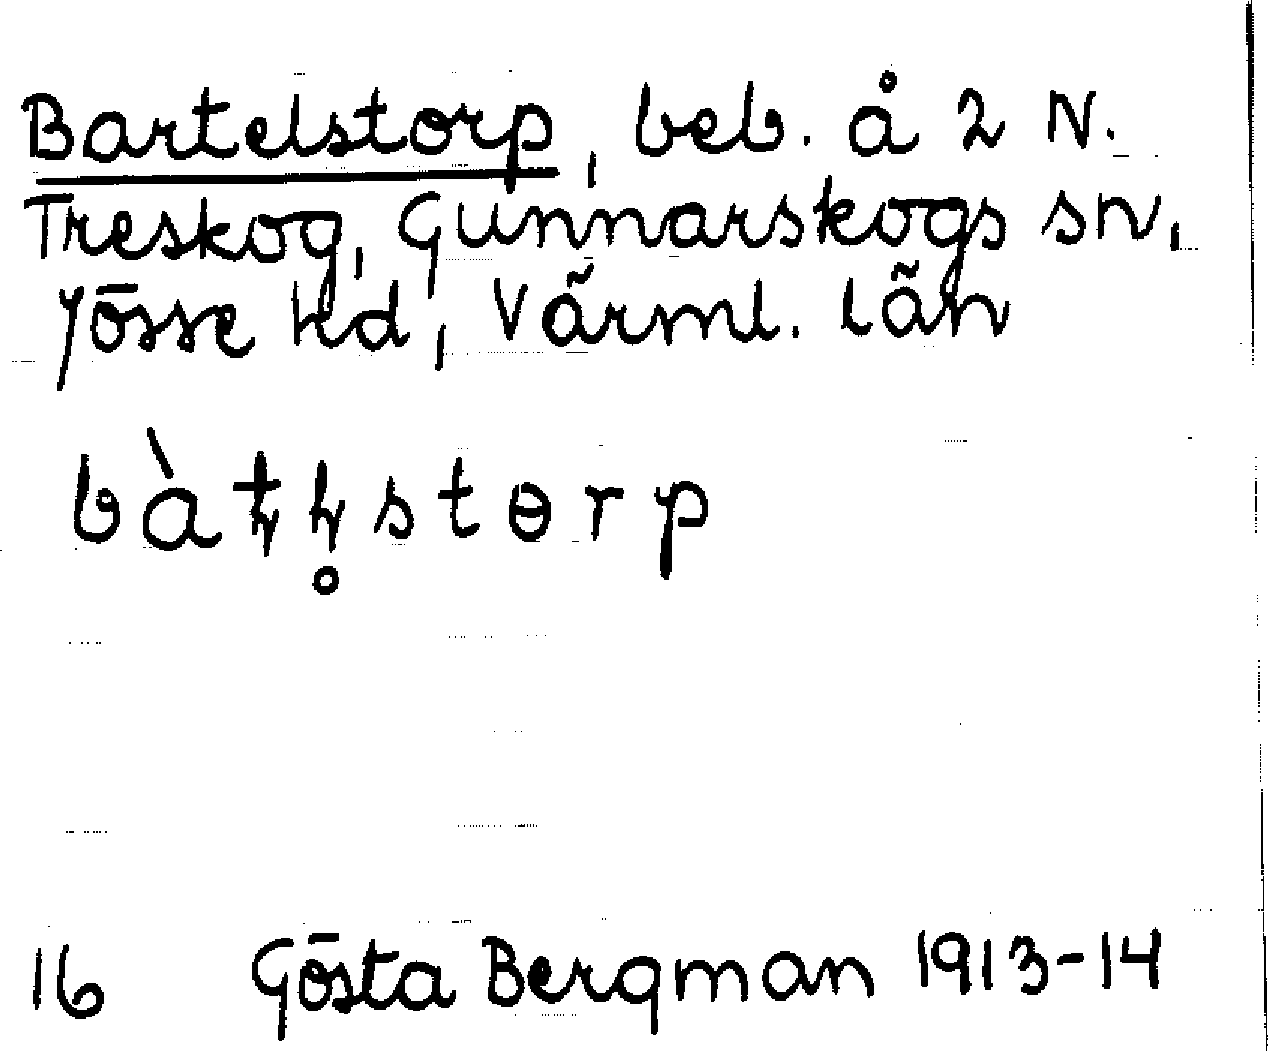 Bartelstorp, beb. å 2 N.
Treskog, Gunnarskogs sn,
Jösse hd, Värml. län
stɵrp
16 Gösta Bergman 1913-14